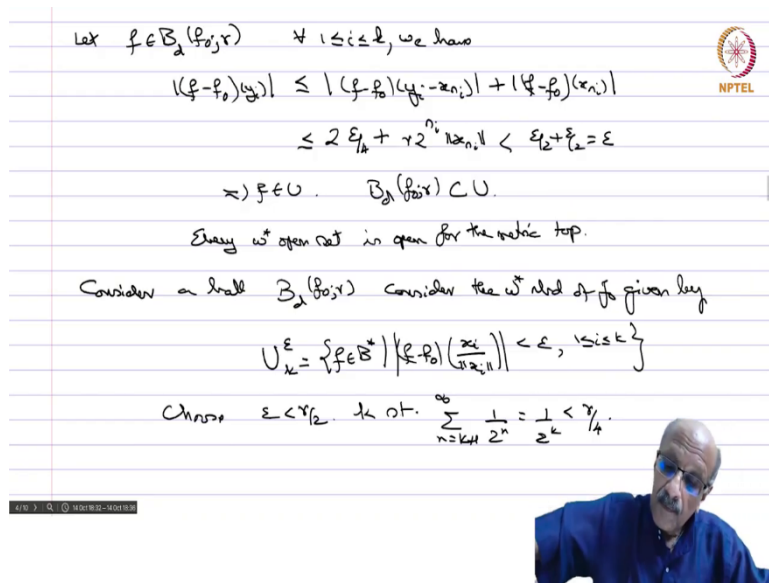 Let f ∈ B_d(f_0; r) ∀ 1 ≤ i ≤ k, we have
NPTEL
|(f-f_0)(y_i)| ≤ |(f-f_0)(y_i - x_{n_i})| + |(f-f_0)(x_{n_i})|
≤ 2 ε/4 + r 2^{n_i} ||x_{n_i}|| < ε/2 + ε/2 = ε
⇒ f ∈ U. B_d(f_0; r) ⊂ U.
Every w* open set is open for the metric top.
Consider a ball B_d(f_0; r) consider the w* nbd of f_0 given by
U_k^ε = {f ∈ B* | |(f-f_0)(x_i/||x_i||)| < ε, 1 ≤ i ≤ k}
Choose ε < r/2. k st. ∑_{n=k+1}^∞ 1/2^n = 1/2^k < r/4.
4/10 14 Oct 18:32–14 Oct 18:39